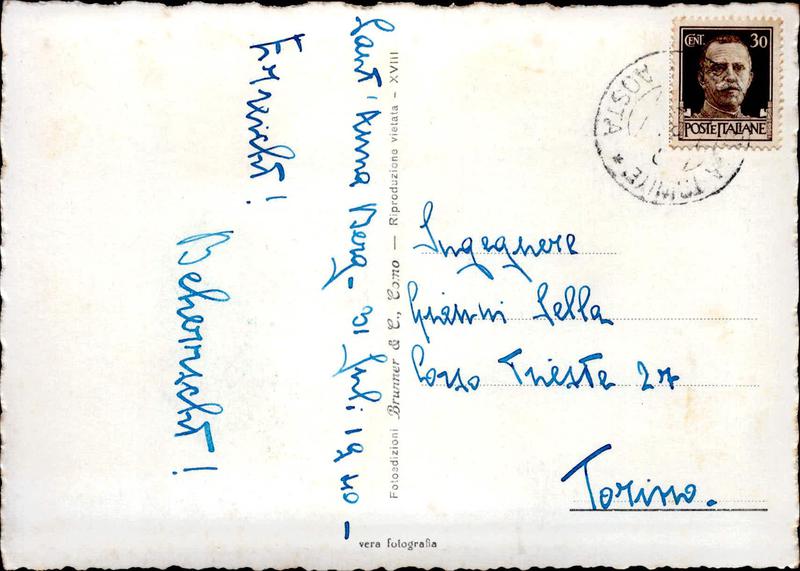 Sant'Anna Berg - 31 Juli 1940 -
Erreicht!
Beherrscht!
Fotoedizioni Brunner & C., Como — Riproduzione vietata - XVIII
CENT. 30
POSTE ITALIANE
AOSTA
Ingegnere
Gianni Sella
Corso Trieste 27
Torino.
vera fotografia